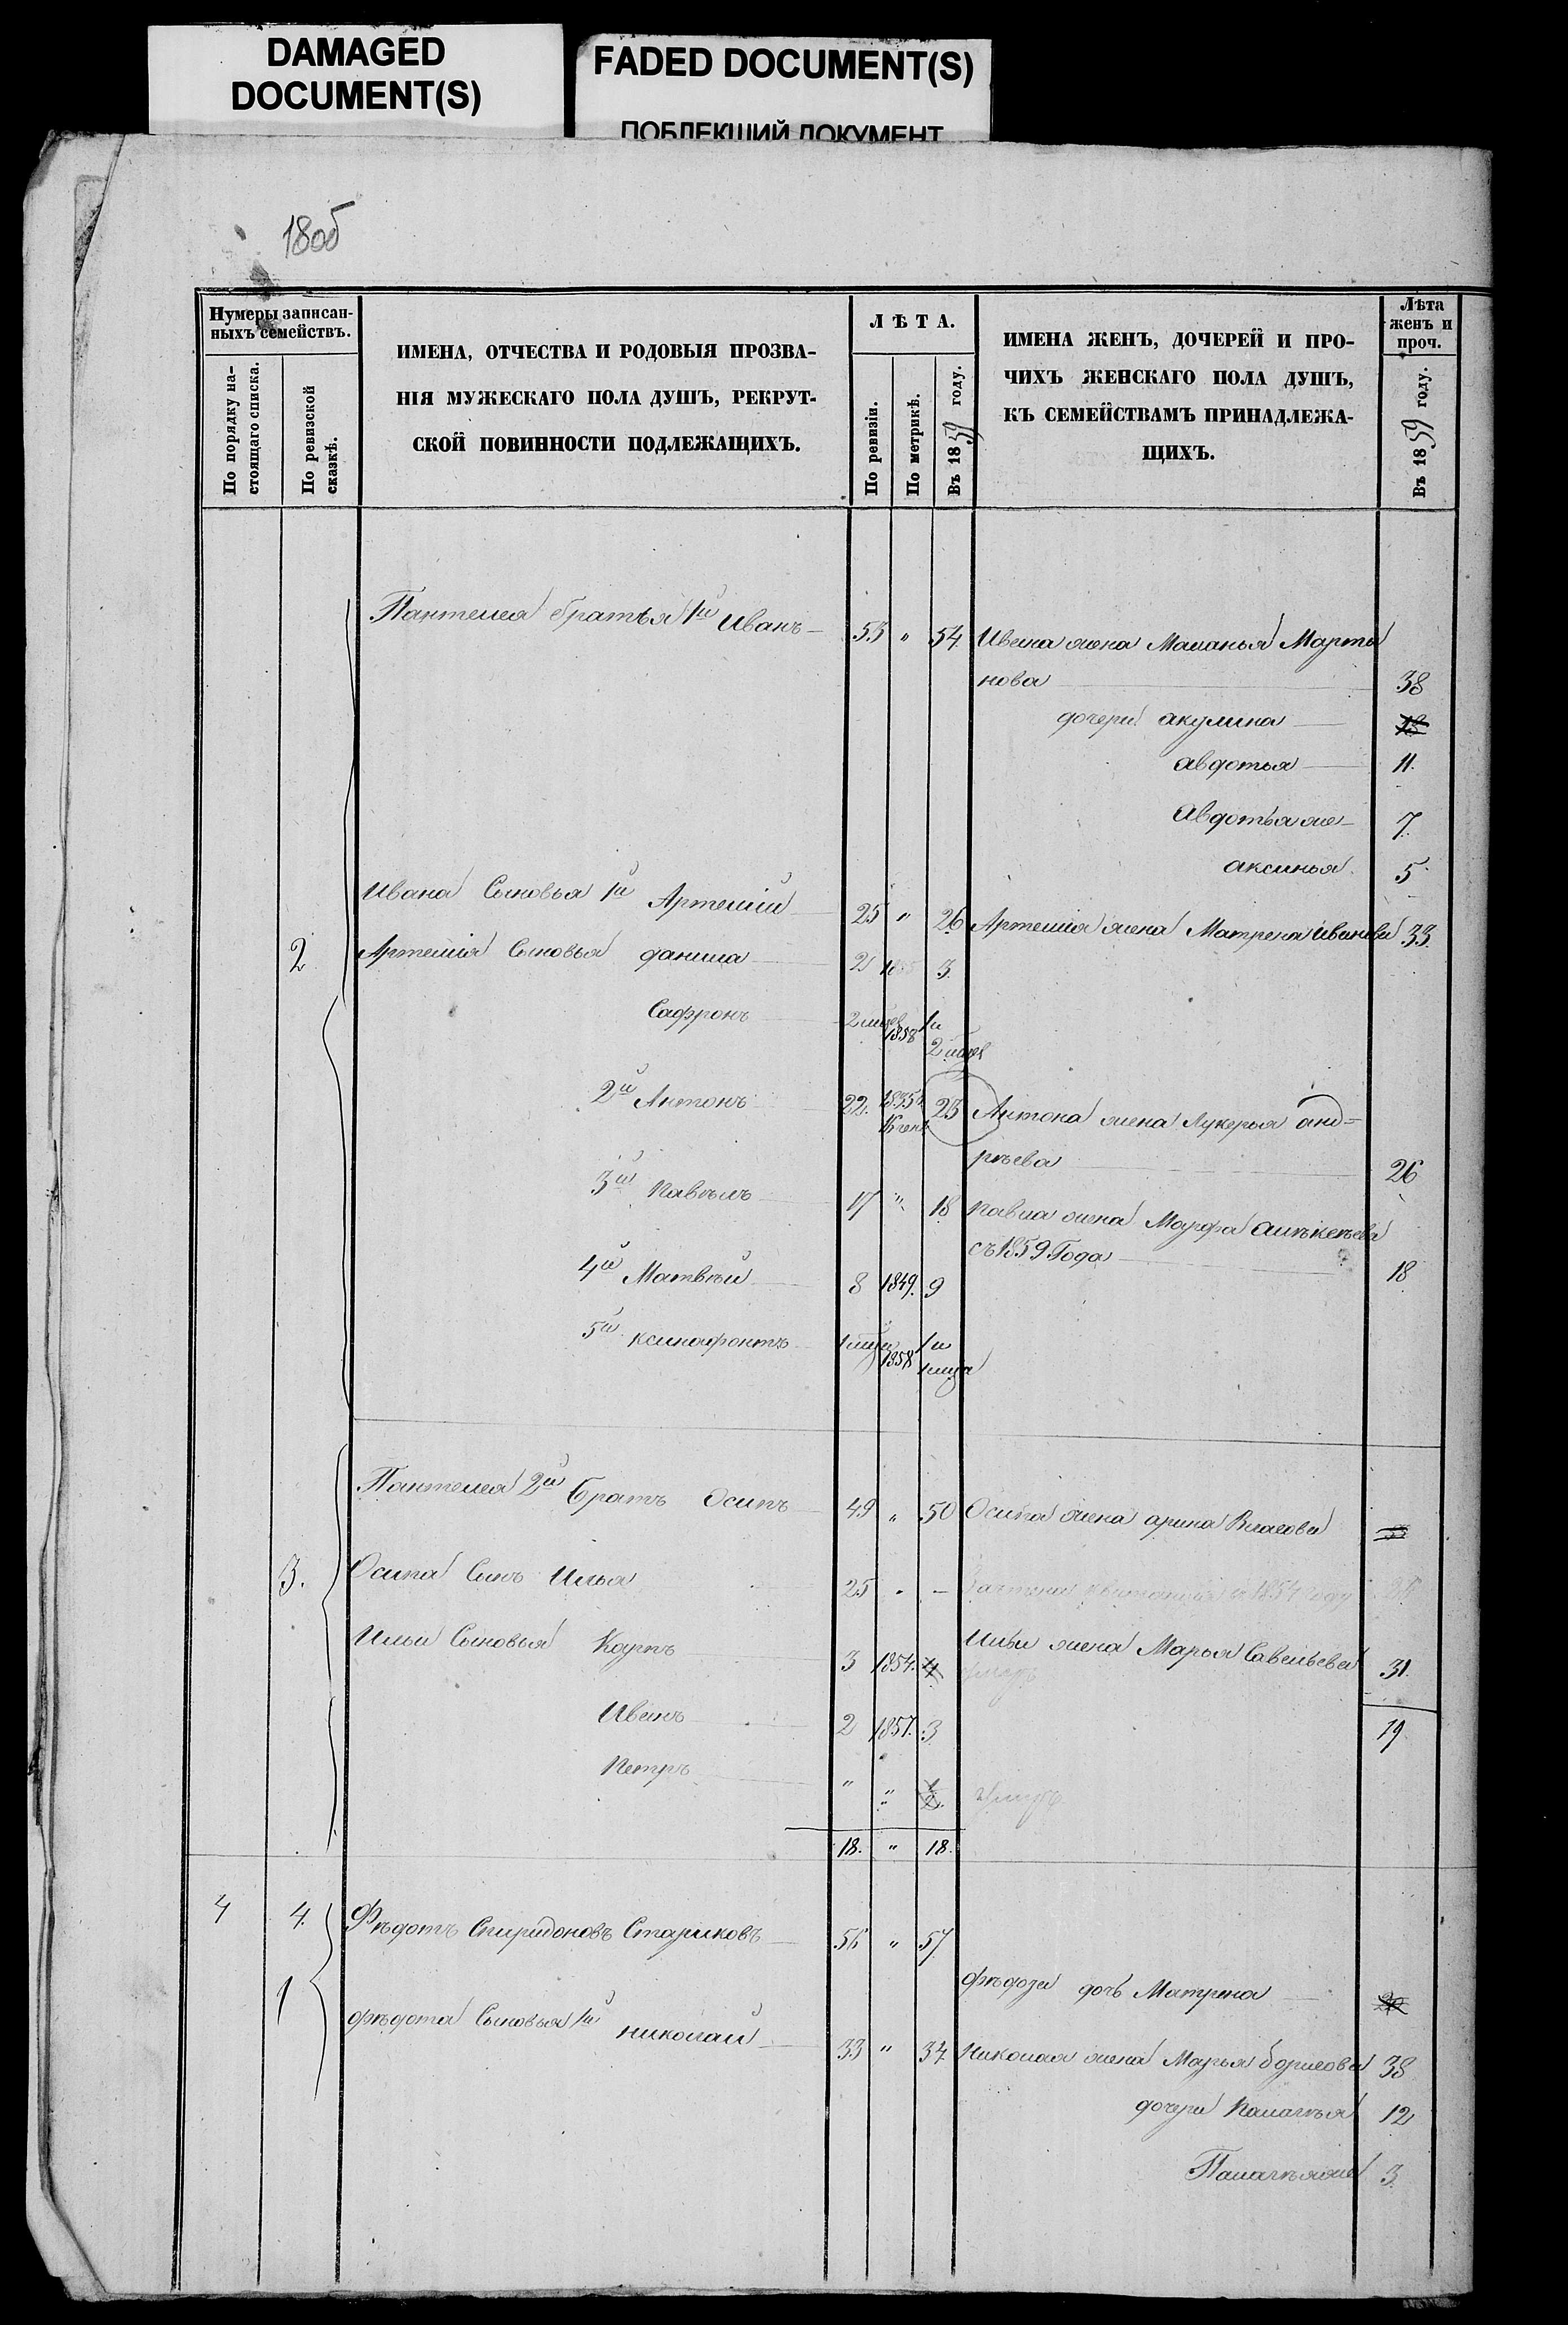 DAMAGED
DOCUMENT(S)
FADED DOCUMENT(S)
ПОБЛЕКШИЙ ДОКУМЕНТ
180б
Нумеры записан-
ныхъ семействъ.
По порядку на-
стоящаго списка.
По ревизской
сказкѣ.
ИМЕНА, ОТЧЕСТВА И РОДОВЫЯ ПРОЗВА-
НІЯ МУЖЕСКАГО ПОЛА ДУШЪ, РЕКРУТ-
СКОЙ ПОВИННОСТИ ПОДЛЕЖАЩИХЪ.
Л Ѣ Т А.
По ревизіи.
По метрикѣ.
Въ 1859 году.
ИМЕНА ЖЕНЪ, ДОЧЕРЕЙ И ПРО-
ЧИХЪ ЖЕНСКАГО ПОЛА ДУШЪ,
КЪ СЕМЕЙСТВАМЪ ПРИНАДЛЕЖА-
ЩИХЪ.
Лѣта
женъ и
проч.
Въ 1859 году.
Пантелея братья 1й Иванъ 53 " 54 Ивана жена Маланья Марты
нова 38
дочери акулина
авдотья 11.
Авдотья же 7
аксинья 5
Ивана Сыновья 1й Артемій 25 " 26 Артемія жена Матрена Иванова 33
2 Артемія Сыновья данила 2 3
Сафронъ 2 мцев 1858 1 и
2 мцев
2й Антонъ 22. 1835 23 Антона жена Лукерья анд=
рѣева 26
3й Павѣлъ 17 " 18 Павла жена Марфа Алѣкѣева
съ 1859 Года 18
4й Матвѣй 8 1849. 9
5й ксинафонтъ 1 мца 1858 1 и
1 мца
Пантелея 2й братъ Осипъ 49 " 50 Осипа жена арина Власова
3. Осипа Сынъ Илья 25 " — 1854 году
Ильи Сыновья Карпъ 3 1854. 4 Ильи жена Марья Савельева 31.
Иванъ 2 1857. 3 19
Петръ " " умеръ
18. " 18.
4 4. Фѣдотъ Спиридоновъ Стариковъ 56 " 57
1 фѣдота дочь Матрена
фѣдота Сыновья 1й николай 33 " 34 Николая жена Марья борисова 38
дочери Палагѣя 12
Палагѣя же 3